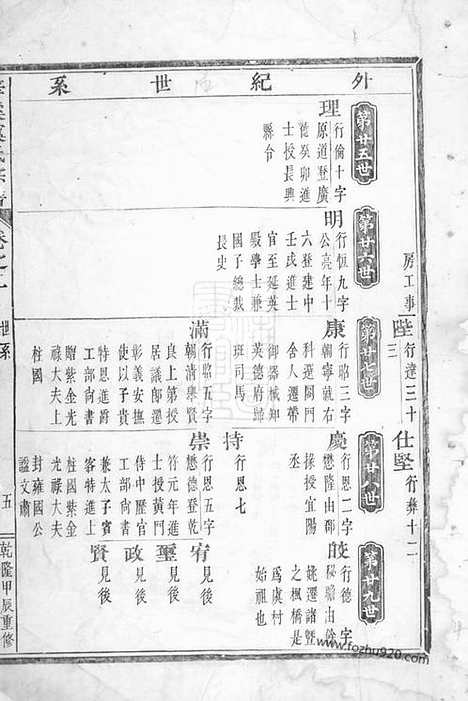 外紀世系
房工事
陞
行達三十
三
仕堅
行葬十二
第廿五世
理
行倫十字
原道登廣
德癸卯進
士授長興
縣令
第廿六世
明
行恆九字
公亮年十
六登建中
壬戌進士
官至延英
殿學士兼
國子總裁
長史
第廿七世
康
行昭三字
朝寧就右
科選閤門
舍人遷帶
御器械知
英德府歸
班司馬
滿
行昭五字
朝清集賢
良上第授
居議郎遷
彰義安撫
使以子貴
特恩進爵
工部尚書
贈紫金光
祿大夫上
柱國
第廿八世
慶
行恩二字
懋隆由郡
掾授宜陽
丞
持
行恩七
崇
行恩五字
懋德登乾
符元年進
士授黃門
侍中歷官
工部尚書
兼太子賓
客特進士
國柱紫金
光祿大夫
封雍國公
諡文肅
第廿九世
皎
行德字
秘瞻由餘
姚遷諸暨
之楓橋是
為虞村
始祖也
宥
見後
璽
見後
政
見後
賢
見後
卷之一
世系
五
乾隆甲辰重修
www.fozhu920.com